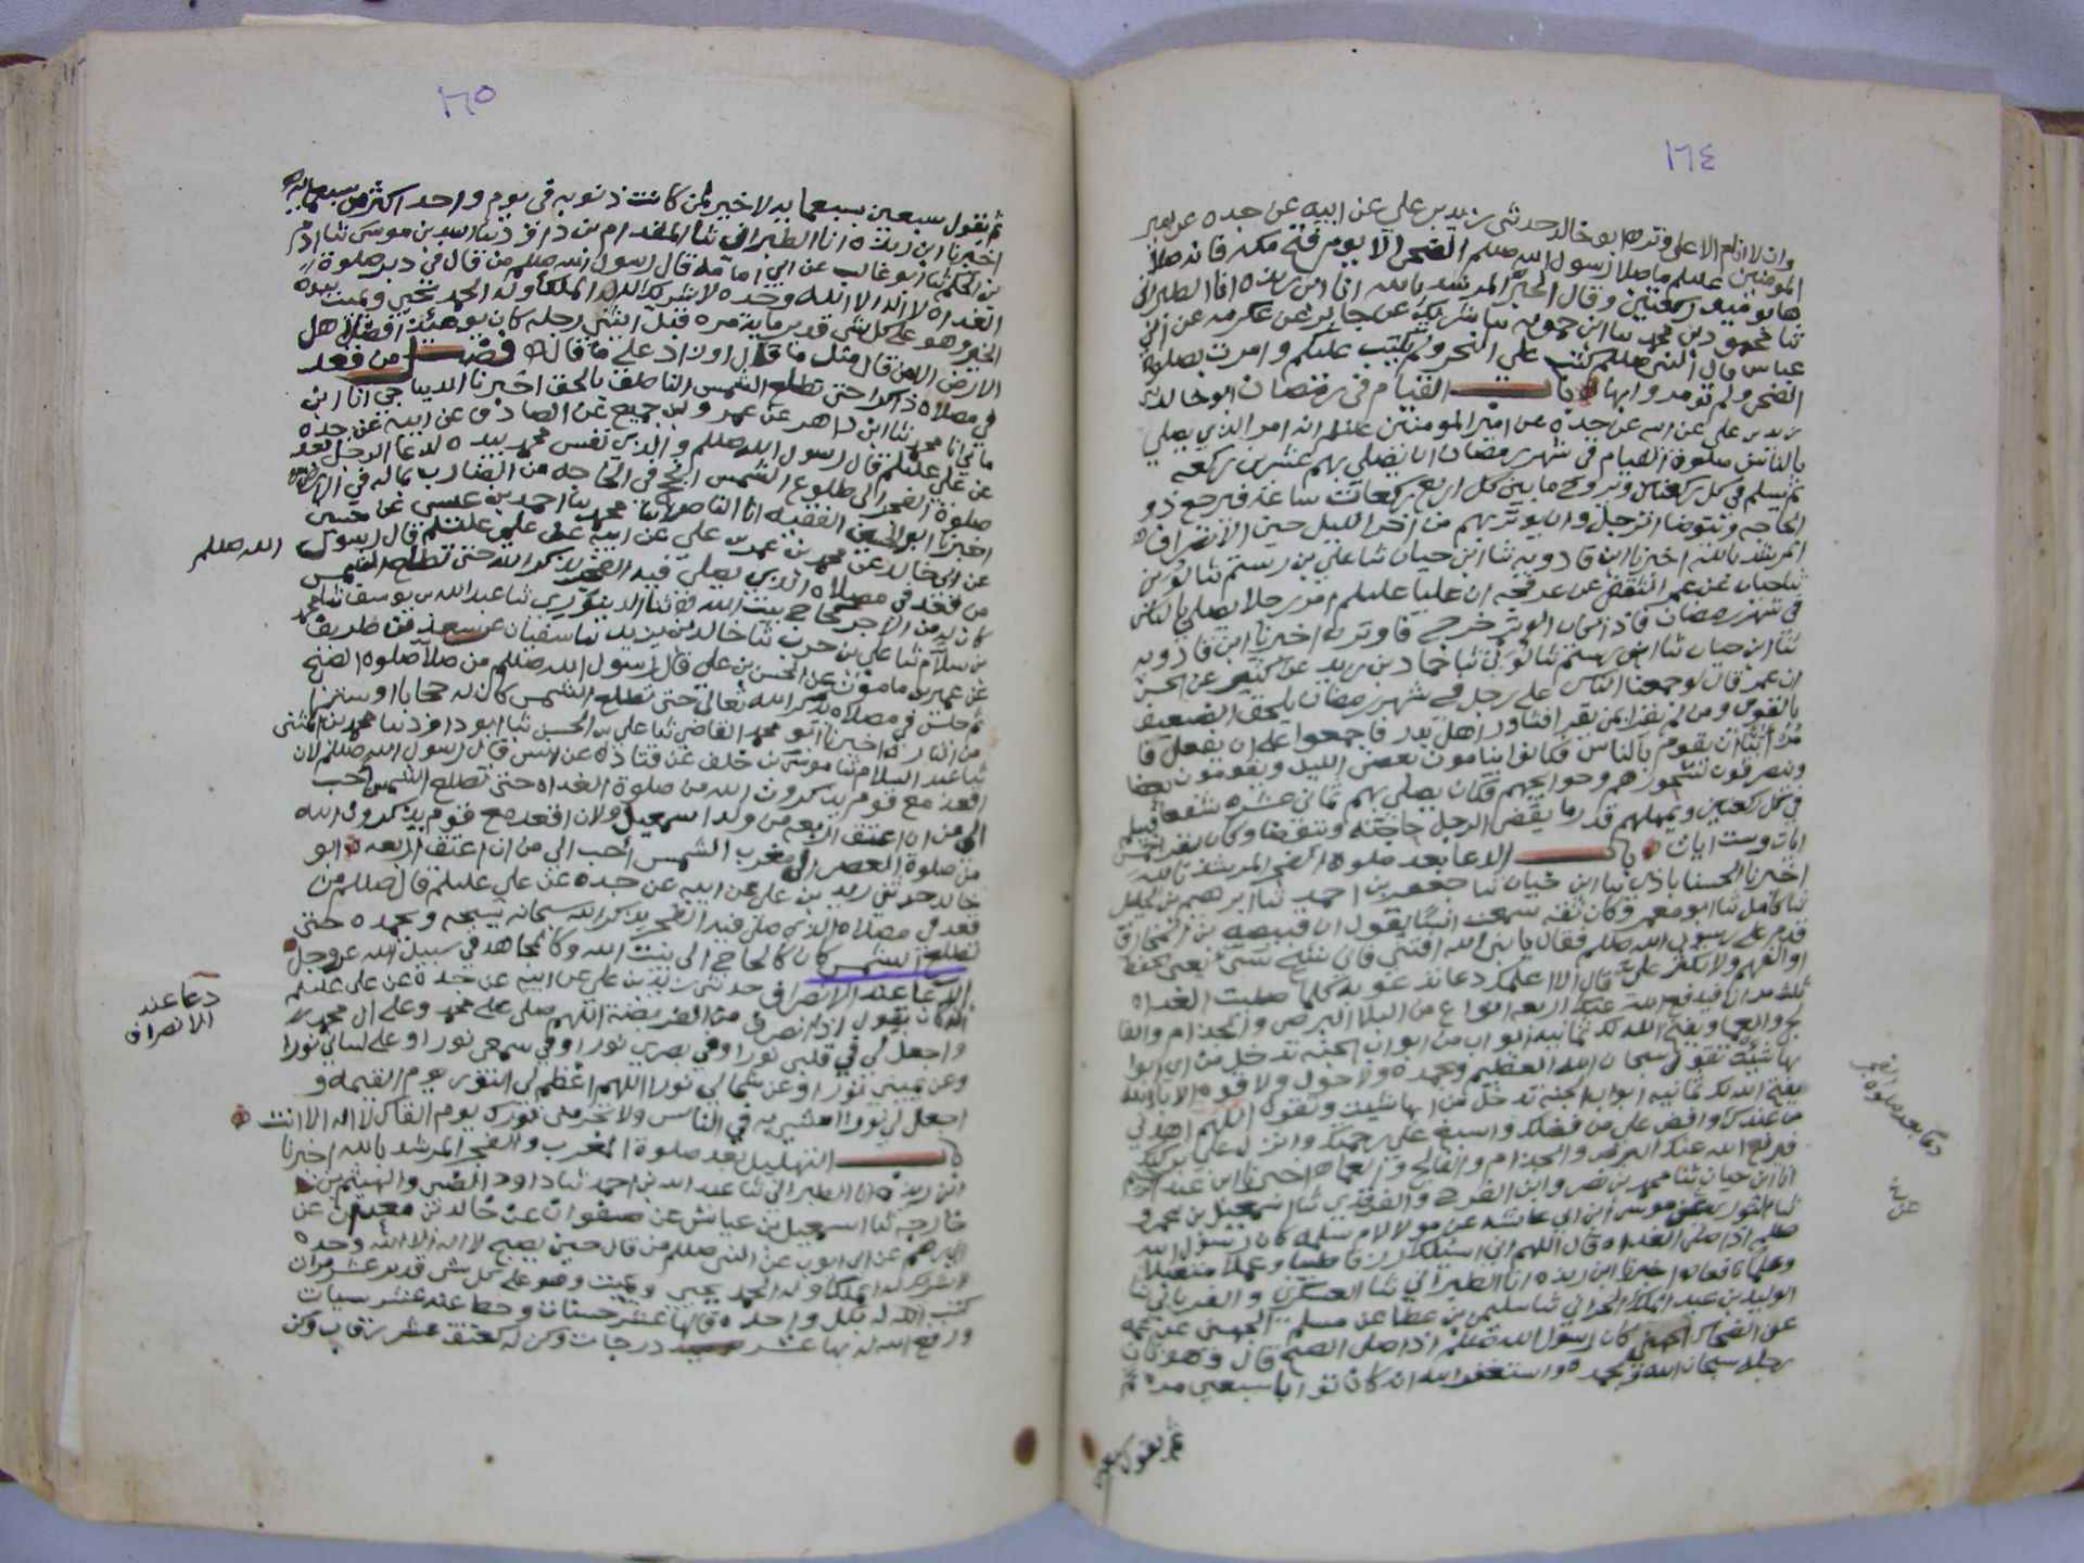 ١٦٤
وان لا انام الا على وتر ابو خالد حدثني زيد بن علي عن ابيه عن جده عن امير
المومنين عليلم ما صلا رسول الله صللم الضحى الا يوم فتح مكه فانه صلا
ها يوميذ ركعتين وقال المرشد بالله انا ابن ريذه انا الطبراني
ثنا محمود بن محمد شريك عن جابر عن عكرمه عن ابن
عباس قال النبي صللم كتب علي النحر ولم يكتب عليكم وامرت بصلوة
الضحى ولم تومروا بها باب القيام في رمضان ابو خالد
زيد بن علي عن ابيه عن جده عن امير المومنين عليلم انه امر الذي يصلي
بالناس صلوة القيام في شهر رمضان ان يصلي بهم عشرين ركعه
يسلم في كل ركعتين ويروح ما بين كل اربع ركعات ساعة فيرجع ذو
الحاجه ويتوضا الرجل وان يوتر بهم من اخر الليل حين الانصراف
المرشد بالله اخبرنا ابن قادويه ثنا ابن حيان ثنا علي بن رستم
عن عمر الثقفي عن عرفجه ان عليا عليلم امر رجلا يصلي بالناس
في شهر رمضان فاذا كان الوتر خرج فاوتر اخبرنا ابن قادويه
ثنا ابن حيان ثنا ابن رستم ثنا حماد بن زيد عن كثير عن الحسن
ان عمر قال لو جمعنا الناس على رجل في شهر رمضان يلحق الضعيف
بالقوي ومن لم يقرا بمن يقرا فشاور اهل بدر فاجمعوا على ان يفعل فا
مر أبيا ان يقوم بالناس فكانوا ينامون بعض الليل ويقومون بعضا
وينصرفون لسحورهم وحوايجهم فكان يصلي بهم ثماني عشره شفعا يسلم
في كل ركعتين ويمهلهم قدر ما يقضي الرجل حاجته ويتوضا وكان يقرا
ايات وست ايات باب الدعا بعد صلوة الفجر المرشد بالله
اخبرنا الحسناباذي ثنا ابن حيان ثنا جعفر بن احمد ثنا ابرهيم بن الخليل
ثنا كامل ثنا ابو معمر وكان ثقه سمعت انسا يقول ان قبيصه بن المخارق
قدم على رسول الله صللم فقال يا نبي الله افتني
قال الا اعلمك دعا تدعو به كلما صليت الغداه
ثلث مرات فيدفع الله عنك اربعه انواع من البلا البرص والجذام والفا
لج والعما ويفتح الله لك ثمانيه ابواب من ابواب الجنه تدخل من اي ابوا
بها شيت تقول سبحان الله العظيم وبحمده ولا حول ولا قوه الا بالله
يفتح الله لك ثمانيه ابواب الجنه تدخل من ايها شيت وتقول اللهم اهدني
من عندك وافض علي من فضلك واسبغ علي رحمتك وانزل علي بركتك
فيدفع الله عنك البرص والجذام والفالج والعما اخبرنا ابن عبد
انا ابن حيان ثنا محمد بن نصر وابن الفرج ثنا اسمعيل بن عمرو
ثنا الثوري عن موسى ابن ابي عايشه عن مولا لام سلمه كان رسول الله
صللم اذا صلى الغداه قال اللهم اني اسيلك رزقا طيبا وعملا متقبلا
وعلما نافعا اخبرنا ابن ريذه انا الطبراني ثنا العسكري ثنا
الوليد بن عبد الملك الحراني ثنا سليمن بن عطا عن مسلم الجهني عن عمه
عن الضحاك الجهني كان رسول الله صللم اذا صلى الصبح قال وهو ثان
رجله سبحان الله وبحمده واستغفر الله انه كان توابا سبعين مره
ثم يقول
دعا بعد صلوة الفجر
١٦٥
ثم يقول سبعين بسبعمايه لا خير لمن كانت ذنوبه في يوم واحد اكثر من سبعمايه
اخبرنا ابن ريذه انا الطبراني ثنا المقدام بن داود ثنا اسد بن موسى ثنا ادم
بن الحكم ثنا ابو غالب عن ابي امامه قال رسول الله صللم من قال في دبر صلوة
الغداه لا اله الا الله وحده لا شريك له له الملك وله الحمد يحيي ويميت بيده
الخير وهو على كل شي قدير مايه مره قبل ان يثني رجله كان يوميذ افضل اهل
الارض الا من قال مثل ما قال او زاد على ما قال فصل من قعد
في مصلاه ذاكرا حتى تطلع الشمس الناطق بالحق اخبرنا الديباجي انا ابن
ماتي انا محمد ثنا ابن داهر عن عمرو بن جميع عن الصادق عن ابيه عن جده
عن علي عليلم قال رسول الله صللم والذي نفس محمد بيده لدعا الرجل بعد
صلوة الفجر الى طلوع الشمس انجح في الحاجه من الضارب بماله في الارض
اخبرنا ابو الحسن الفقيه انا الناصر ثنا محمد ثنا احمد بن عيسى عن حسين
عن ابي خالد عن محمد بن عمر بن علي عن ابيه عن علي عليلم قال رسول الله صللم
من قعد في مصلاه الذي يصلي فيه الفجر يذكر الله حتى تطلع الشمس
كان له من الاجر كحاج بيت الله ثنا الدينوري ثنا عبد الله بن يوسف ثنا محمد
بن سلام ثنا علي بن حرب ثنا خالد بن يزيد ثنا سفيان عن سعد بن طريف
عن عمير بن مامون عن الحسن بن علي قال رسول الله صللم من صلا صلوة الصبح
ثم جلس في مصلاه يذكر الله تعالى حتى تطلع الشمس كان له حجابا او سترا
من النار اخبرنا ابو محمد القاضي ثنا علي بن الحسين ثنا ابو داود ثنا محمد بن المثنى
ثنا عبد السلام ثنا موسى بن خلف عن قتاده عن انس قال رسول الله صللم لان
اقعد مع قوم يذكرون الله من صلوة الغداه حتى تطلع الشمس احب
الي من ان اعتق اربعه من ولد اسمعيل ولان اقعد مع قوم يذكرون الله
من صلوة العصر الى مغرب الشمس احب الي من ان اعتق اربعه ابو
خالد حدثني زيد بن علي عن ابيه عن جده عن علي عليلم قال صللم من
قعد في مصلاه الذي صلى فيه الفجر يذكر الله سبحانه يسبحه ويحمده حتى
تطلع الشمس كان كالحاج الى بيت الله وكالمجاهد في سبيل الله عز وجل
الدعا عند الانصراف حدثني زيد بن علي عن ابيه عن جده عن علي عليلم
انه كان يقول اذا انصرف من الفريضة اللهم صلي على محمد وعلى ال محمد
واجعل لي في قلبي نورا وفي بصري نورا وفي سمعي نورا وعلى لساني نورا
وعن يميني نورا وعن شمالي نورا اللهم اعظم لي النور يوم القيمه و
اجعل لي نورا امشي به في الناس ولا تحرمني نورك يوم القاك لا اله الا انت
باب التهليل بعد صلوة المغرب والفجر المرشد بالله اخبرنا
ابن ريذه انا الطبراني ثنا عبد الله بن احمد ثنا داود الضبي والهيثم بن
خارجه ثنا اسمعيل بن عياش عن صفوان عن خالد بن معدان عن
ابي رهم عن ابي ايوب عن النبي صللم من قال حين يصبح لا اله الا الله وحده
لا شريك له له الملك وله الحمد يحيي ويميت وهو على كل شي قدير عشر مرات
كتب الله له بكل واحده قالها عشر حسنات وحط عنه عشر سيات
ورفع الله له بها عشر درجات وكن له كعتق عشر رقاب وكن
الله صللم
دعا عند
الانصراف